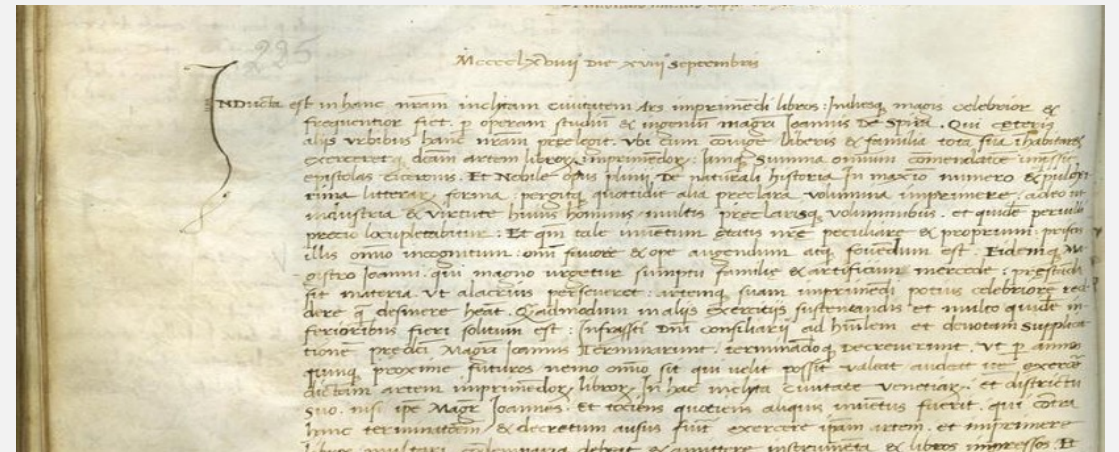 225
Mcccclxviiij die xviij septembris
INDucta est in hanc nr̃am inclitam ciuitatem Ars imprimẽdi libros: Indiesq magis celebrior &
frequentior fiet. p operam studiũ & ingeniũ magr̃i Ioannis De Spira. Qui ceteris
aliis vrbibus hanc nr̃am prelegit. vbi cum coniuge liberis & familia tota sua ĩhabitaret
exerceretq dc̃am artem libroꝝ imprimendoꝝ: Iamq summa omnium comendatiõe impressit
epistolas Ciceronis. Et Nobile opus plinii De naturali historia In maxĩo numero & pulcher
rima litteraꝝ forma: pergitq quottidie alia preclara volumina imprimere: adeo ut
industria & virtute huius hominis multis preclarisq voluminibus. et quidẽ peruili
precio locupletabitur: Et qm̃ tale inuẽtum ętatis nr̃e peculiare & proprium: priscis
illis omĩo incognitum: omni fauore & ope augendum atq fouẽdum est: Eidemq Ma
gistro Ioanni. qui magno urgetur sumptu familie & artificum mercede: prestãda
sit materia. vt alacrius perseueret: artemq suam imprimẽdi potius celebriorẽ red
dere q̃ desinere hẽat. Q̃admodum in aliis exercitiis sustentandis et multo quidẽ in
ferioribus fieri solitum est: Infrasc̃ti Dñi Consiliarii ad hũilem et deuotam supplica
tionẽ predc̃i Magr̃i Ioannis Terminarunt. terminãdoq Decreuerunt. vt p annos
quinq proxime futuros nemo omĩo sit qui uelit possit valeat audeat ue exercẽ
dictam artem imprimendoꝝ libroꝝ In hac inclita Ciuitate venetiaꝝ et districtu
suo. nisi ip̃e Magr̃ Ioannes. Et tociens quociens aliquis inuẽtus fuerit. qui cõtra
hanc terminatõem & decretum ausus fuit exercere ip̃am artem. et imprimere
libros multari condemnariq debeat & amittere instrum̃ta & libros impressos. Et